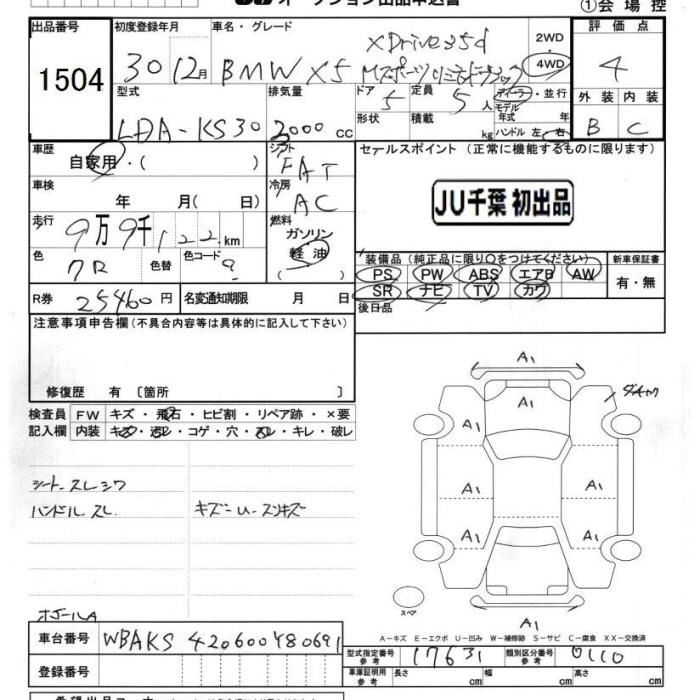 オークション出品申込書
①会場控
出品番号
1504
初度登録年月
30 12月
車名・グレード
BMW X5
xDrive35d
2WD
・
4WD
評価点
4
型式
LDA-KS30
排気量
2000 cc
ドア
5
形状
定員
5人
積載
kg
ディーラー・並行
モデル
年式 年
ハンドル 左・右
外装 内装
B C
車歴
自家用・( )
シフト
FAT
セールスポイント(正常に機能するものに限ります)
JU千葉 初出品
車検
年 月( 日)
冷房
AC
走行
9万9千122km
燃料
ガソリン
軽油
( )
色
色替
色コード
装備品(純正品に限り○をつけてください)
PS PW ABS エアB AW
SR ナビ TV カワ
新車保証書
有・無
R券
25460円
名変通知期限 月 日
後日品
注意事項申告欄(不具合内容等は具体的に記入して下さい)
修復歴 有 〔箇所 〕
検査員
記入欄
FW キズ・飛石・ヒビ割・リペア跡・×要
内装 キズ・汚レ・コゲ・穴・スレ・キレ・破レ
シートスレシワ
ハンドルスレ
A1
A1
A1
A1
A1
A1
A1
A1
A1
A-キズ E-エクボ U-凹み W-補修跡 S-サビ C-腐食 XX-交換済
車台番号
WBAKS420600Y80691
登録番号
型式指定番号
参考
17631
類別区分番号
参考
0110
車庫証明用
参考
長さ cm 幅 cm 高さ cm